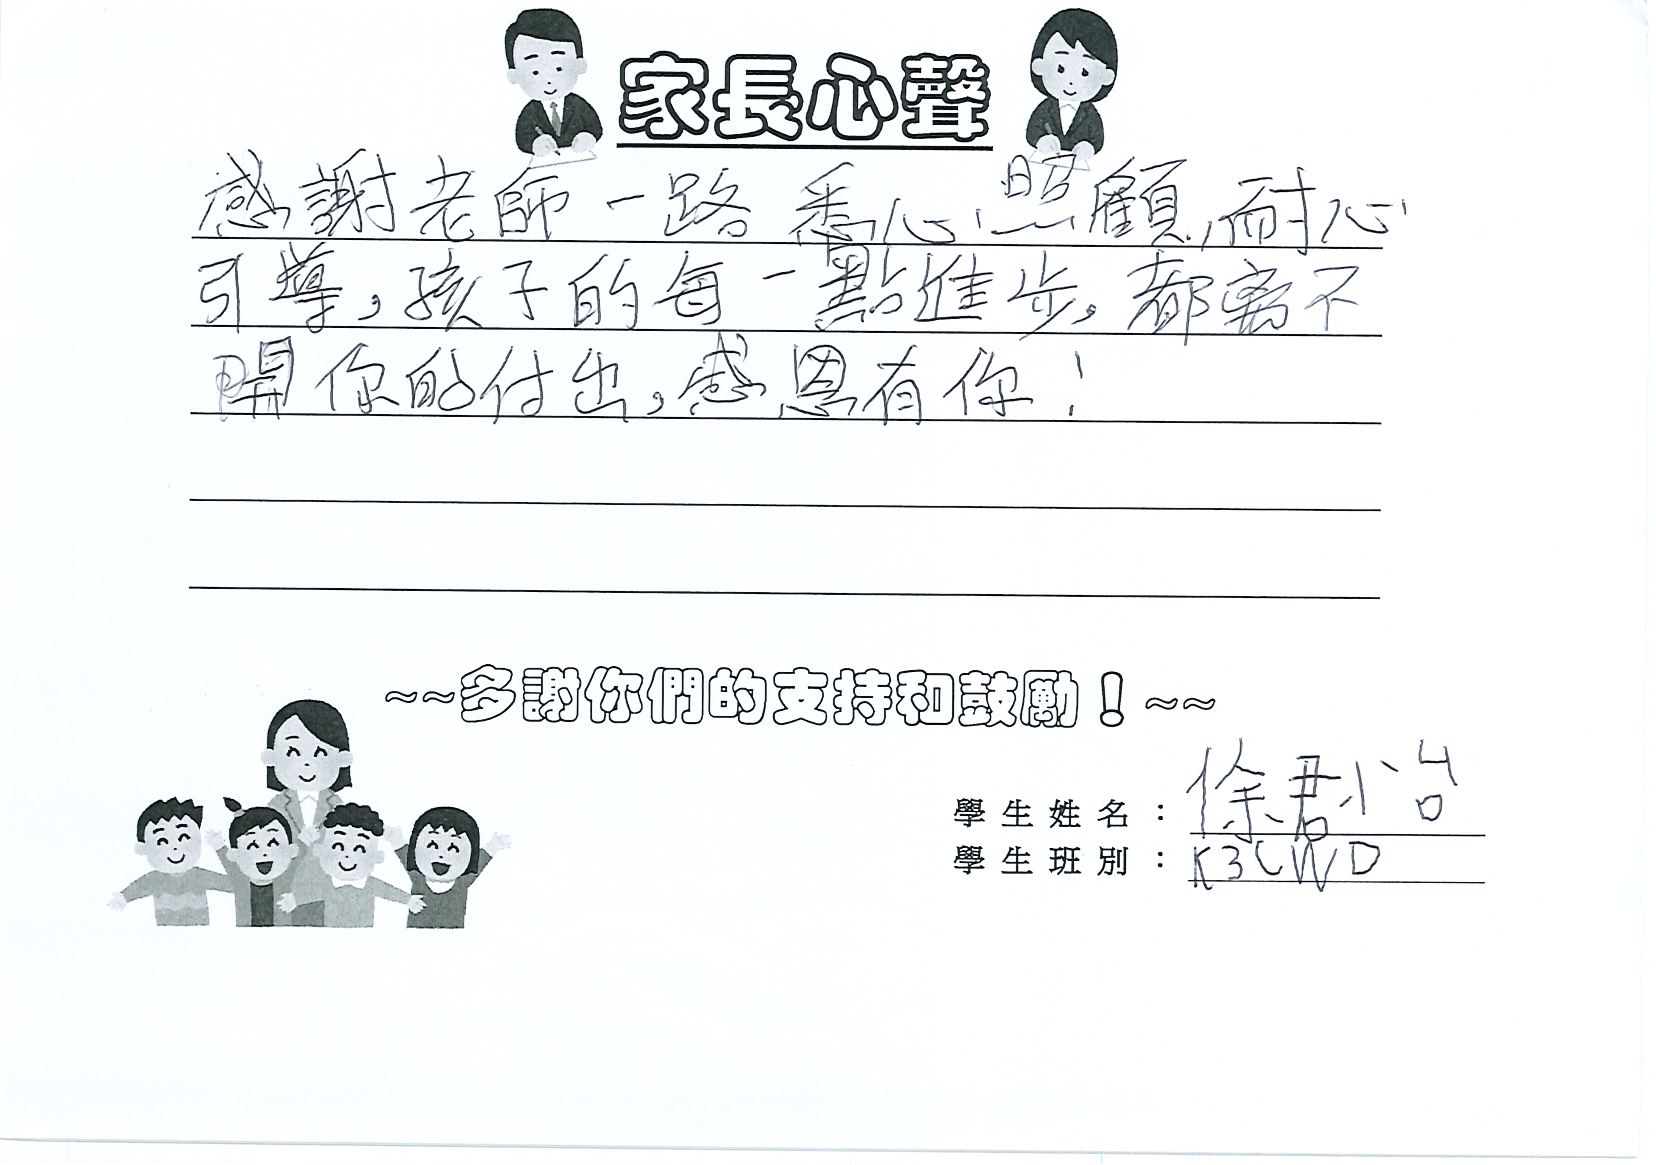 家長心聲
感謝老師一路悉心照顧,耐心
引導,孩子的每一點進步,都离不
開你的付出,感恩有你!
~~多謝你們的支持和鼓勵!~~
學生姓名:徐君怡
學生班別:K3CWD